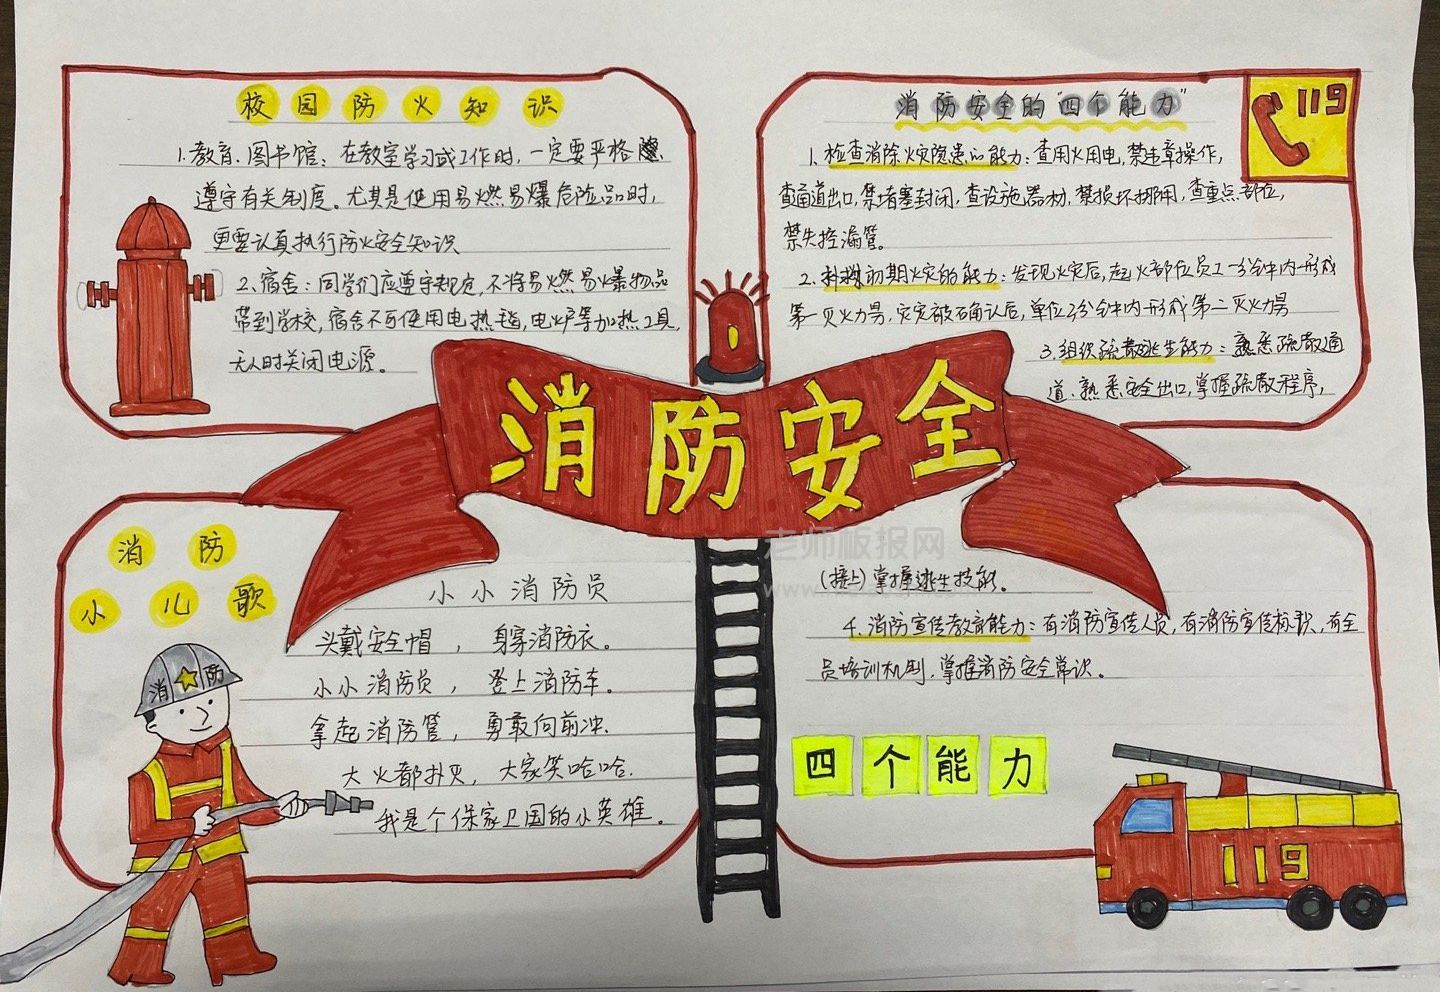 校园防火知识
1.教育、图书馆：在教室学习或工作时，一定要严格
遵守有关制度。尤其是使用易燃易爆危险品时，
更要认真执行防火安全知识
2.宿舍：同学们应遵守规定，不将易燃易爆物品
带到学校，宿舍不可使用电热毯，电炉等加热工具，
无人时关闭电源。
消防安全的“四个能力”
119
1.检查消除火灾隐患的能力：查用火用电，禁违章操作，
查通道出口，禁堵塞封闭，查设施器材，禁损坏挪用，查重点部位，
禁失控漏管。
2.扑救初期火灾的能力：发现火灾后，起火部位员工1分钟内形成
第一灭火力男，灾灾被确认后，单位3分钟内形成第二灭火力男
3.组织疏散逃生能力：熟悉疏散通
道、熟悉安全出口，掌握疏散程序，
消防安全
消防
小儿歌
小小消防员
头戴安全帽，身穿消防衣。
小小消防员，登上消防车。
拿起消防管，勇敢向前冲.
大火都扑灭，大家笑哈哈.
我是个保家卫国的小英雄。
消防
老师板报网
(接上)掌握逃生技能。
4.消防宣传教育能力：有消防宣传人员，有消防宣传标识，有全
员培训机制，掌握消防安全常识。
四个能力
119